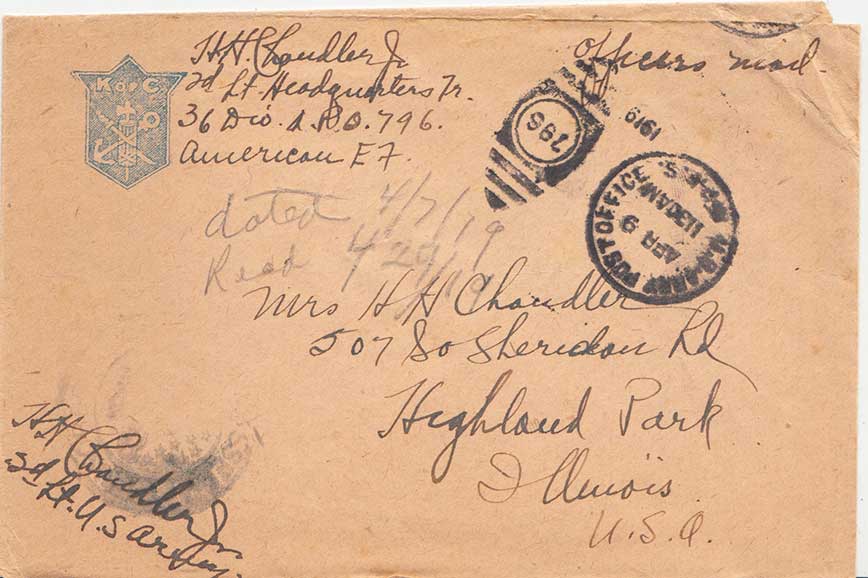 K of C
H.H. Chandler Jr
2d Lt. Headquarters Tr.
36 Div. A.P.O. 796.
American E F.
Officers mail.
796
1919
U.S. ARMY POST OFFICE M.P.E.S.
APR 9
11 30 AM
dated 4/7/19
Recd 4/29/19
Mrs H H Chandler
507 So Sheridan Rd
Highland Park
Illinois
U.S.A.
H H Chandler Jr.
2d Lt. U.S Army.